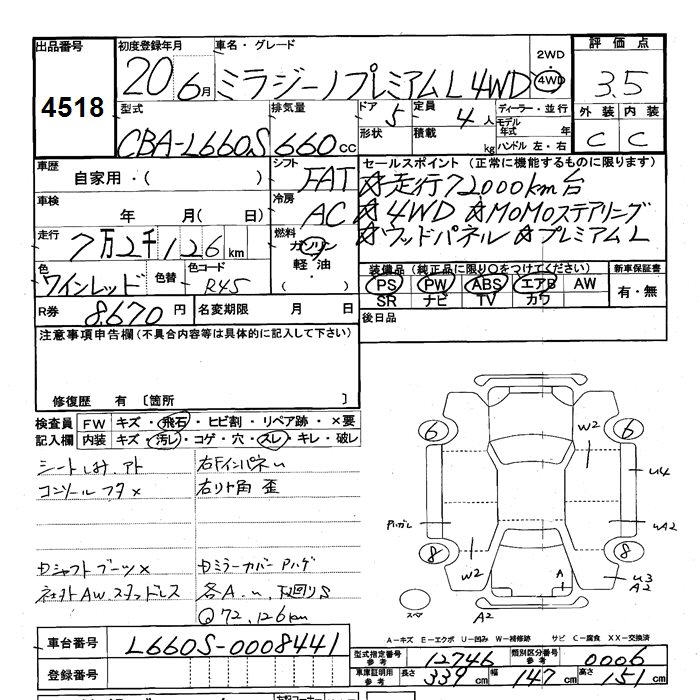 出品番号 初度登録年月 車名・グレード 2WD 評価点
4518 20 6月 ミラジーノプレミアムL 4WD 4WD 3.5
型式 排気量 ドア 5 定員 4人 ディーラー・並行 外装 内装
CBA-L660S 660cc 形状 積載 kg モデル年式 年 ハンドル 左・右 C C
車歴 自家用・( ) シフト FAT セールスポイント (正常に機能するものに限ります)
☆走行72000km台
車検 年 月( 日) 冷房 AC ☆4WD ☆MOMOステアリング
走行 7万2千126km 燃料 ガソリン 軽・油 ・( ) ☆ウッドパネル ☆プレミアムL
色 ワインレッド 色替 色コード R45 装備品(純正品に限り○をつけてください) 新車保証書
PS PW ABS エアB AW 有・無
SR ナビ TV カワ
R券 8,670円 名変期限 月 日 後日品
注意事項申告欄(不具合内容等は具体的に記入して下さい)
修復歴 有〔箇所 〕
検査員記入欄 FW キズ・飛石・ヒビ割・リペア跡・×要
内装 キズ・汚レ・コゲ・穴・スレ・キレ・破レ
シートしみ、アト 右Fインパネu
コンソールフタ× 右リト角 歪
シャフトブーツ× ミラーカバーPハゲ
社外AWスタッドレス 各A.u、下回りS
72,126km
6 6 W2 U4 Pハガレ UA2 8 8 W2 A U3 A2 A2 スペア
A-キズ E-エクボ U-凹み W-補修跡 サビ C-腐食 XX-交換済
車台番号 L660S-0008441
型式指定番号 参考 12746 類別区分番号 参考 0006
登録番号 車庫証明用 参考 長さ 339cm 幅 147cm 高さ 151cm